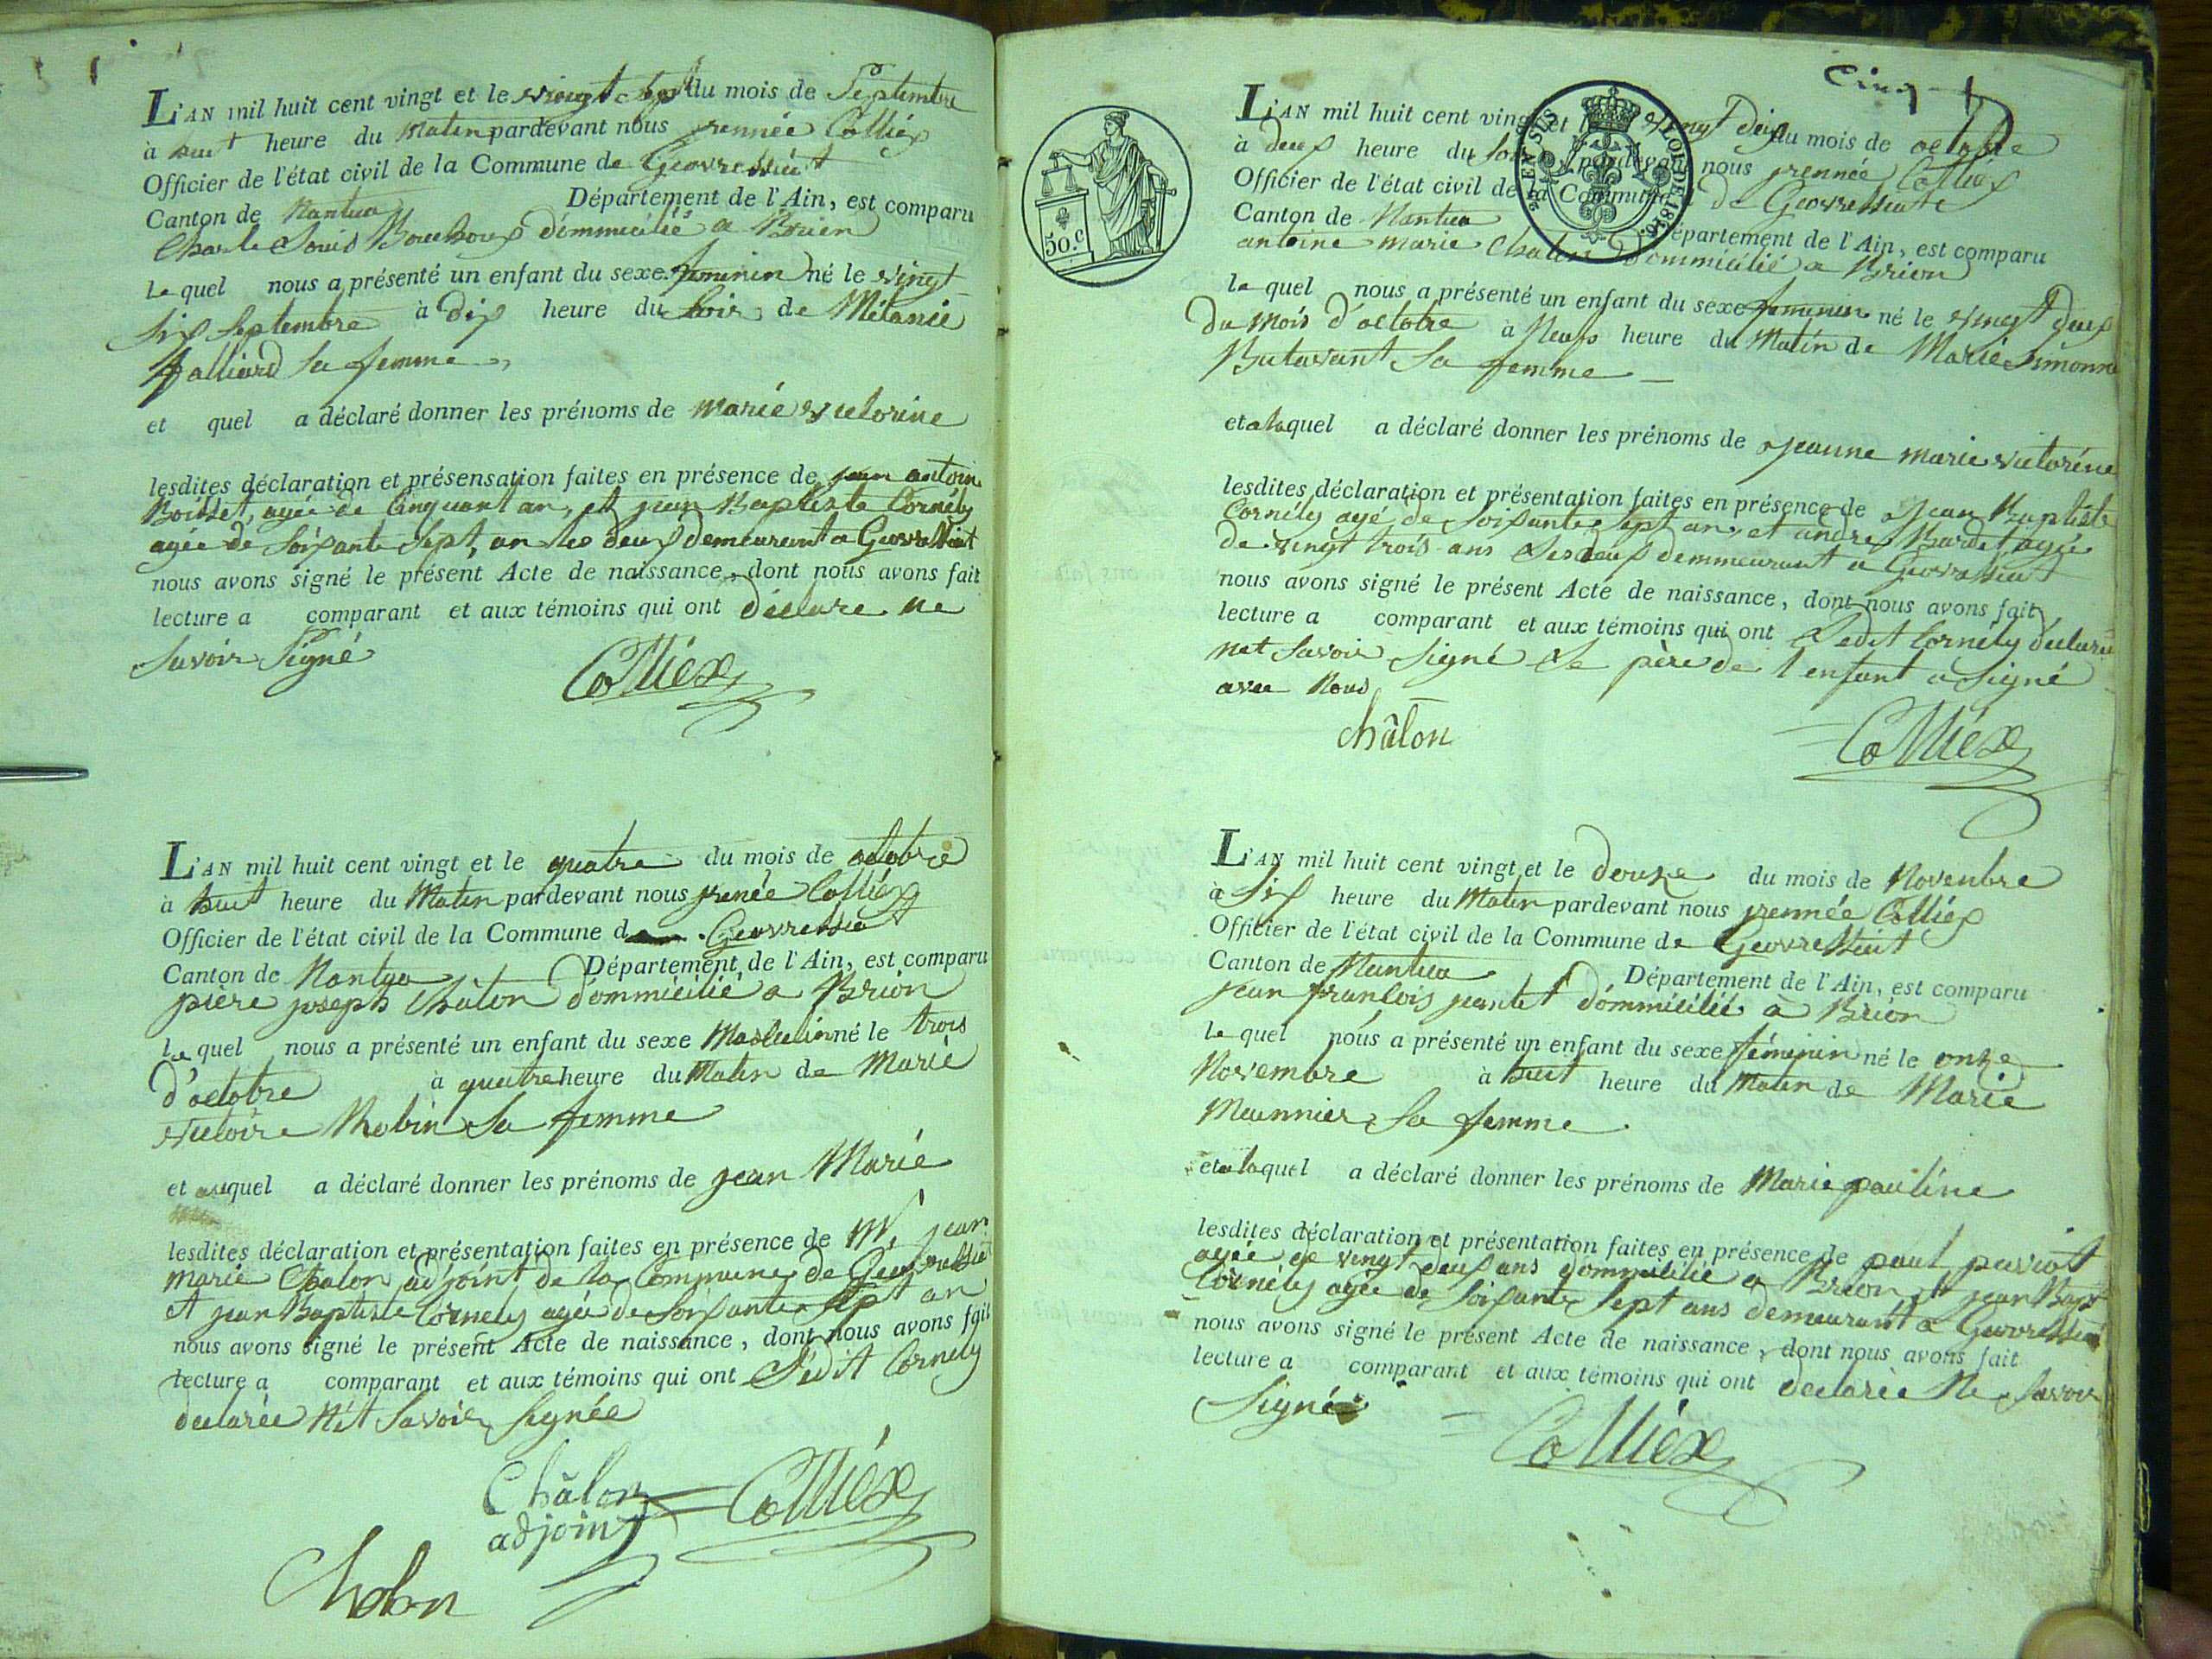 L'AN mil huit cent vingt et le vingt sept du mois de Septembre
à huit heure du Matin pardevant nous rennée Colliex
Officier de l'état civil de la Commune de Geovressiat
Canton de Nantua Département de l'Ain, est comparu
Charle Louis Bouchoux dommicilié a Brion
le quel nous a présenté un enfant du sexe feminin né le vingt
six Septembre à dix heure du Soir de Mélanie
Jalliard Sa femme
et quel a déclaré donner les prénoms de marie victorine
lesdites déclaration et présensation faites en présence de jean antoine
Boisset, agée de Cinquant an, et jean Baptiste Cornély
agée de Soixante Sept, an les deux demeurent a Geovressiat
nous avons signé le présent Acte de naissance, dont nous avons fait
lecture a comparant et aux témoins qui ont déclare ne
Savoir Signé
Colliex
L'AN mil huit cent vingt et le quatre du mois de octobre
à huit heure du Matin pardevant nous renée Colliex
Officier de l'état civil de la Commune d Geovressiat
Canton de Nantua Département de l'Ain, est comparu
pière joseph Châlon dommicilié a Brion
le quel nous a présenté un enfant du sexe Masculin né le trois
d'octobre à quatre heure du Matin de Marie
victoire Robin Sa femme
et auquel a déclaré donner les prénoms de jean Marie
lesdites déclaration et présentation faites en présence de Mr jean
marie Chalon adjoint de la Commune de Geovressiat
et jean Baptiste Cornely agée de Soixante Sept an
nous avons signé le présent Acte de naissance, dont nous avons fait
lecture a comparant et aux témoins qui ont Ledit Cornely
declarée Nét Savoir Signée
Châlon
adjoint
Colliex
Chalon
Cinq
50.c
EN SUS
LOI DE 1816
L'AN mil huit cent vingt et le vingt deux du mois de octobre
à deux heure du Soir pardevant nous rennée Colliex
Officier de l'état civil de la Commune de Geovressiat
Canton de Nantua Département de l'Ain, est comparu
antoine marie Chalon Dommicilié a Brion
le quel nous a présenté un enfant du sexe feminin né le vingt deux
du Mois d'octobre à Neufs heure du Matin de Marie Simonne
Butavant Sa femme
et a laquel a déclaré donner les prénoms de jeanne marie victorine
lesdites déclaration et présentation faites en présence de jean Baptiste
Cornély agé de Soixante Sept an, et andre Bardet agée
de vingt trois ans Les deux demmeurant a Geovressiat
nous avons signé le présent Acte de naissance, dont nous avons fait
lecture a comparant et aux témoins qui ont Ledit Cornély déclaré
net Savoir Signé Le père de l enfant a Signé
avec Nous
châlon
Colliex
L'AN mil huit cent vingt et le douze du mois de Novenbre
à Six heure du Matin pardevant nous rennée Colliex
Officier de l'état civil de la Commune de Geovressiat
Canton de Nantua Département de l'Ain, est comparu
jean francois jeantet dommicilié à Brion
le quel nous a présenté un enfant du sexe féminin né le onze
Novembre à huit heure du Matin de Marie
Meunnier Sa femme
et a laquel a déclaré donner les prénoms de Marie pauline
lesdites déclaration et présentation faites en présence de paul paviot
agée de vingt deux ans dommicilié a Brion et jean Bapt
Cornély agée de Soixante Sept ans demeurant a Geovressiat
nous avons signé le présent Acte de naissance, dont nous avons fait
lecture a comparant et aux témoins qui ont declarée Ne Savoir
Signé
Colliex